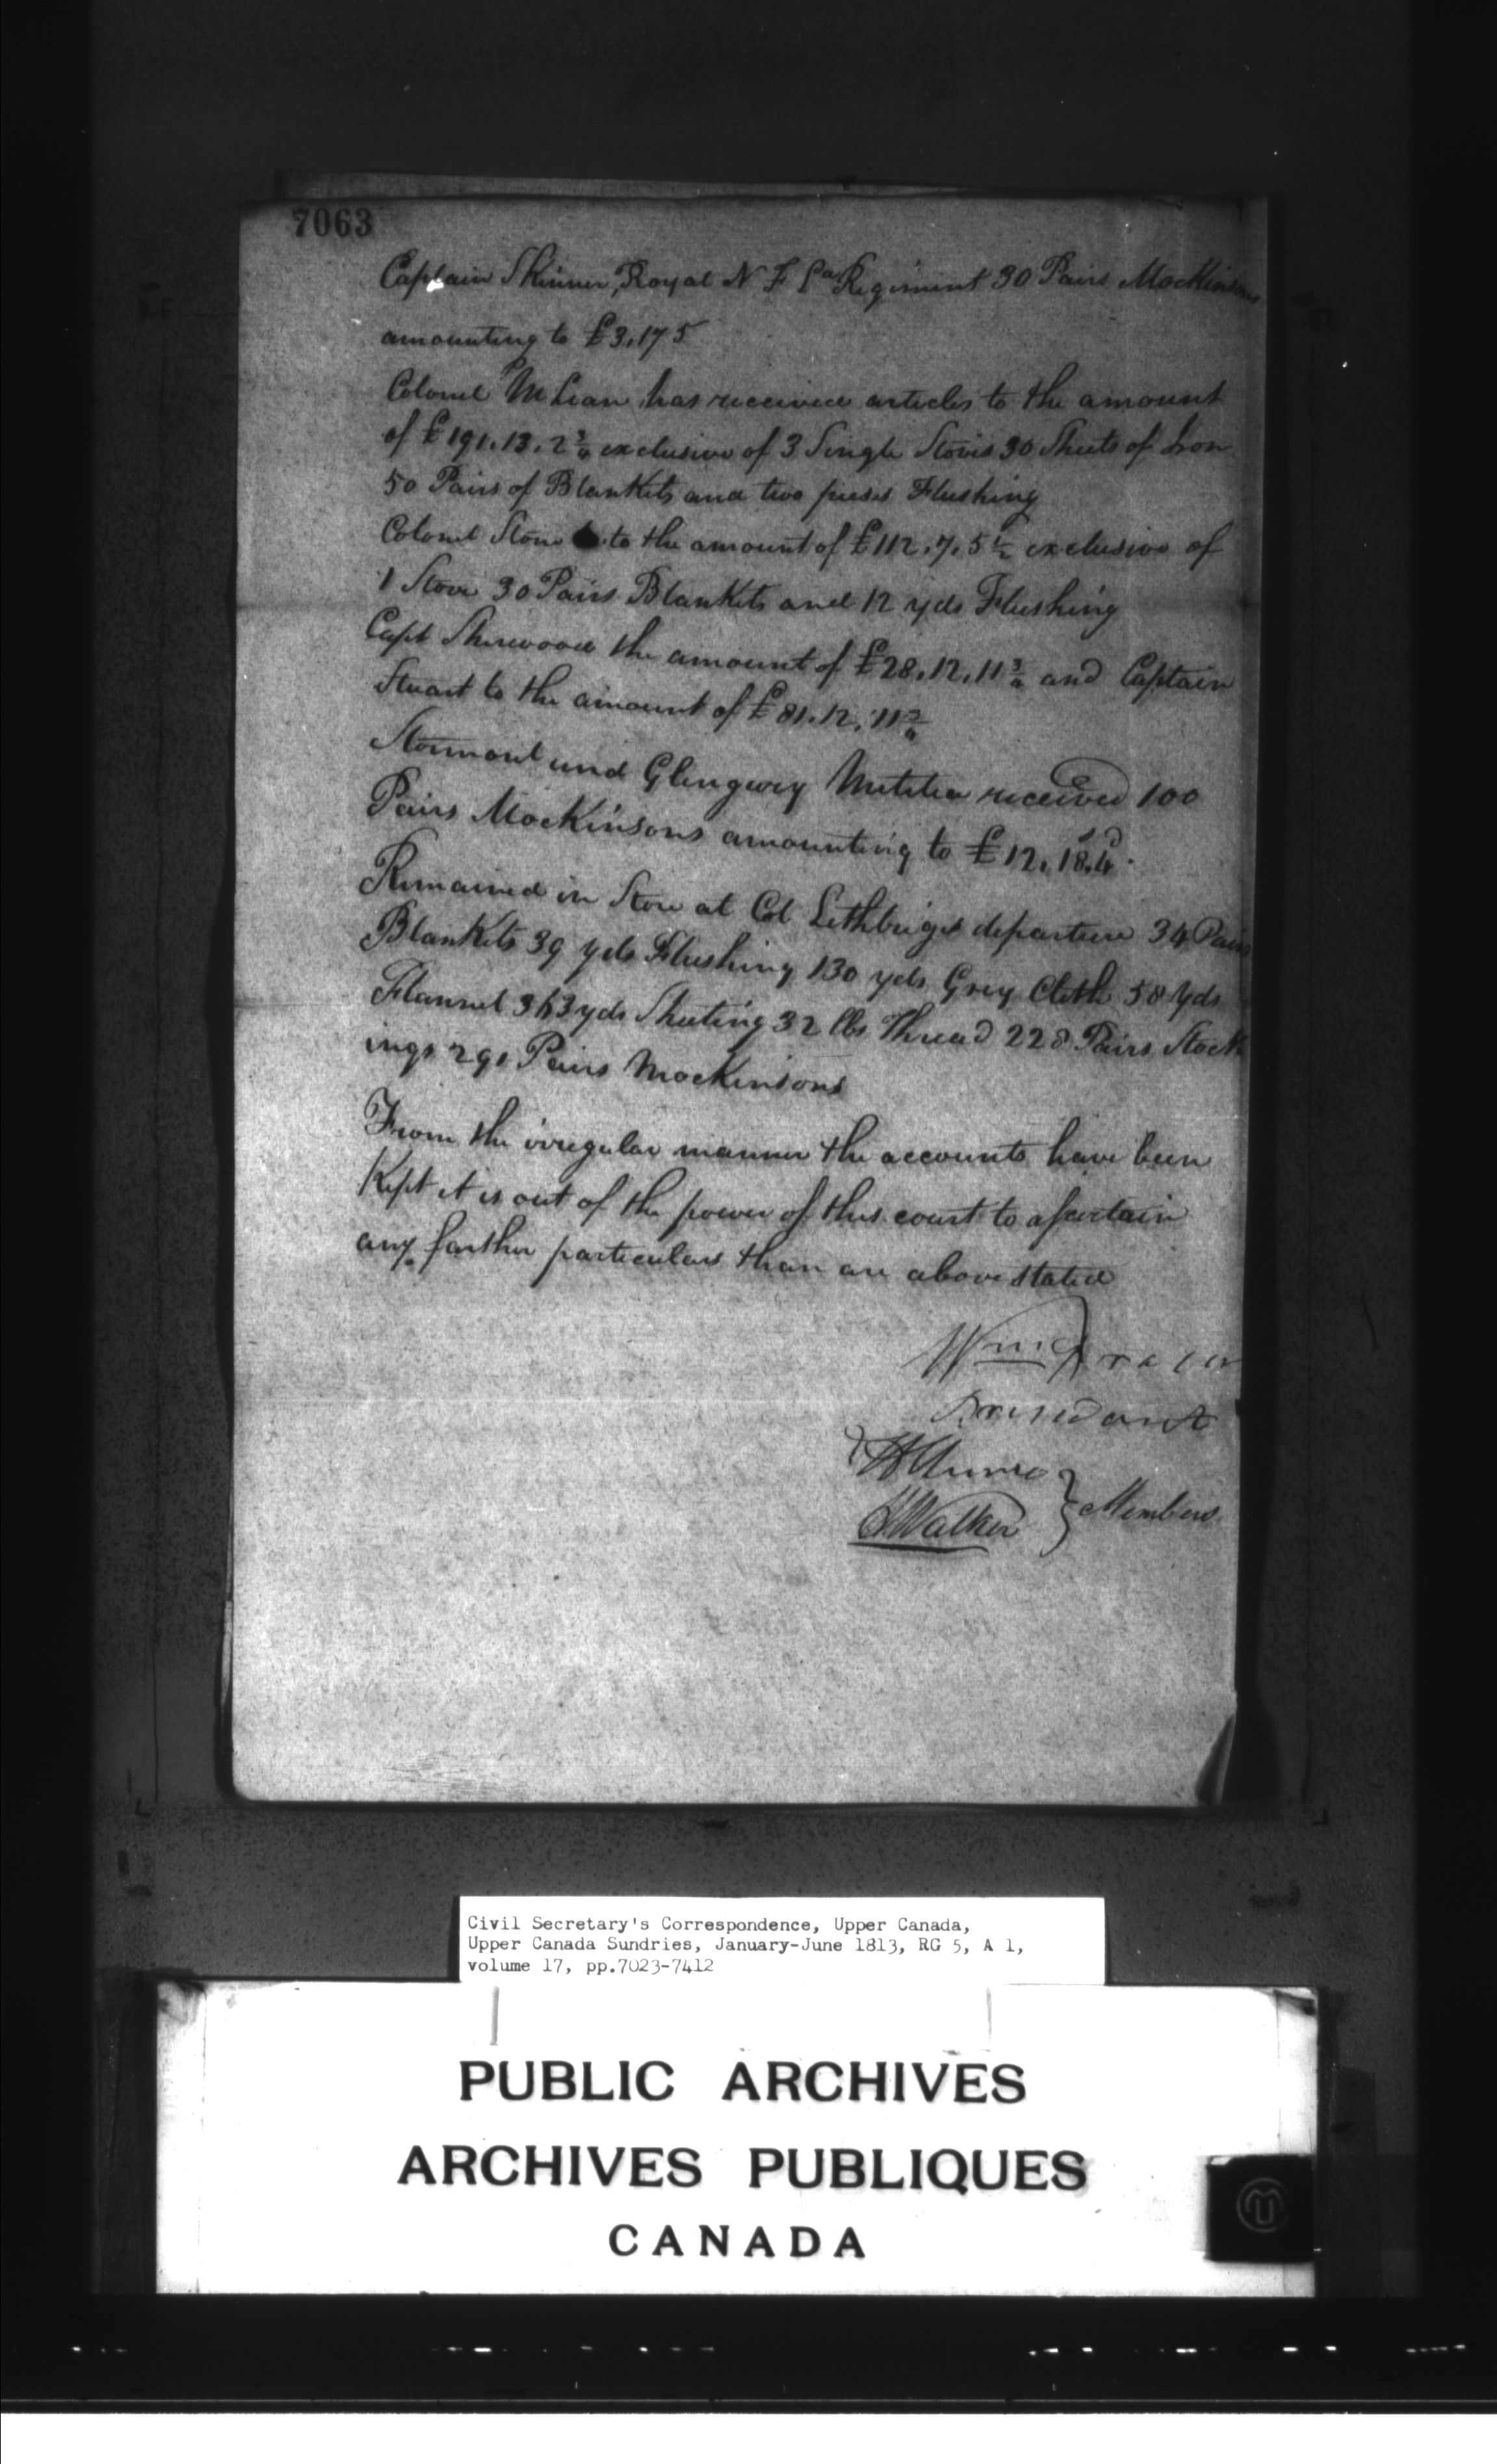 7063
Captain Skinner, Royal N F Ld Regiment 30 Pairs Mockinsons
amounting to £3.17 5
Colonel McLean has received articles to the amount
of £191.13.2 3/4 exclusive of 3 Single Stoves 30 Sheets of Iron
50 Pairs of Blankets and two pieses Flushing
Colonel Stone to the amount of £112.7.5 1/2 exclusive of
1 Stove 30 Pairs Blankets and 12 yds Flushing
Capt Sherwood the amount of £28.12.11 3/4 and Captain
Stuart to the amount of £81.12.11 3/4
Stormont and Glengary Militia received 100
Pairs Mockinsons amounting to £12.18s.4d.
Remained in Store at Col Lethbriges departure 34 Pairs
Blankets 39 yds Flushing 130 yds Grey Cloth 58 yds
Flannel 363 yds Sheeting 32 lbs Thread 228 Pairs Stock
ings 291 Pairs Mockinsons
From the irregular manner the accounts have been
Kept it is out of the power of this court to ascertain
any farther particulars than are above stated
Wm Fraser
President
H Munro
H Walker } Members
Civil Secretary's Correspondence, Upper Canada,
Upper Canada Sundries, January-June 1813, RG 5, A 1,
volume 17, pp.7023-7412
PUBLIC ARCHIVES
ARCHIVES PUBLIQUES
CANADA